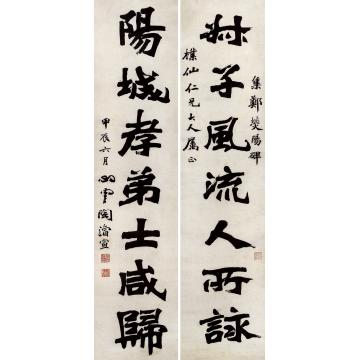 集鄭熒陽碑
叔子風流人所詠
樸仙仁兄大人屬正
陽城孝弟士咸歸
甲辰六月
心雲陶濬宣